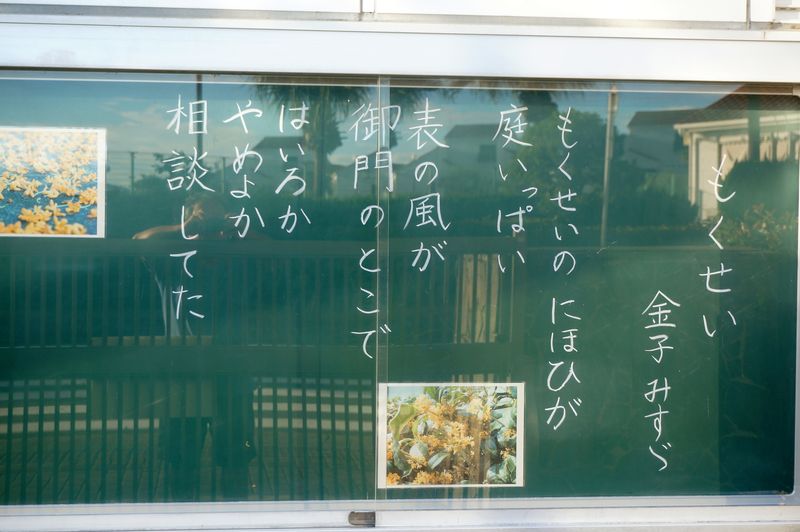 もくせい
金子みすゞ
もくせいの にほひが
庭いっぱい
表の風が
御門のとこで
はいろか
やめよか
相談してた